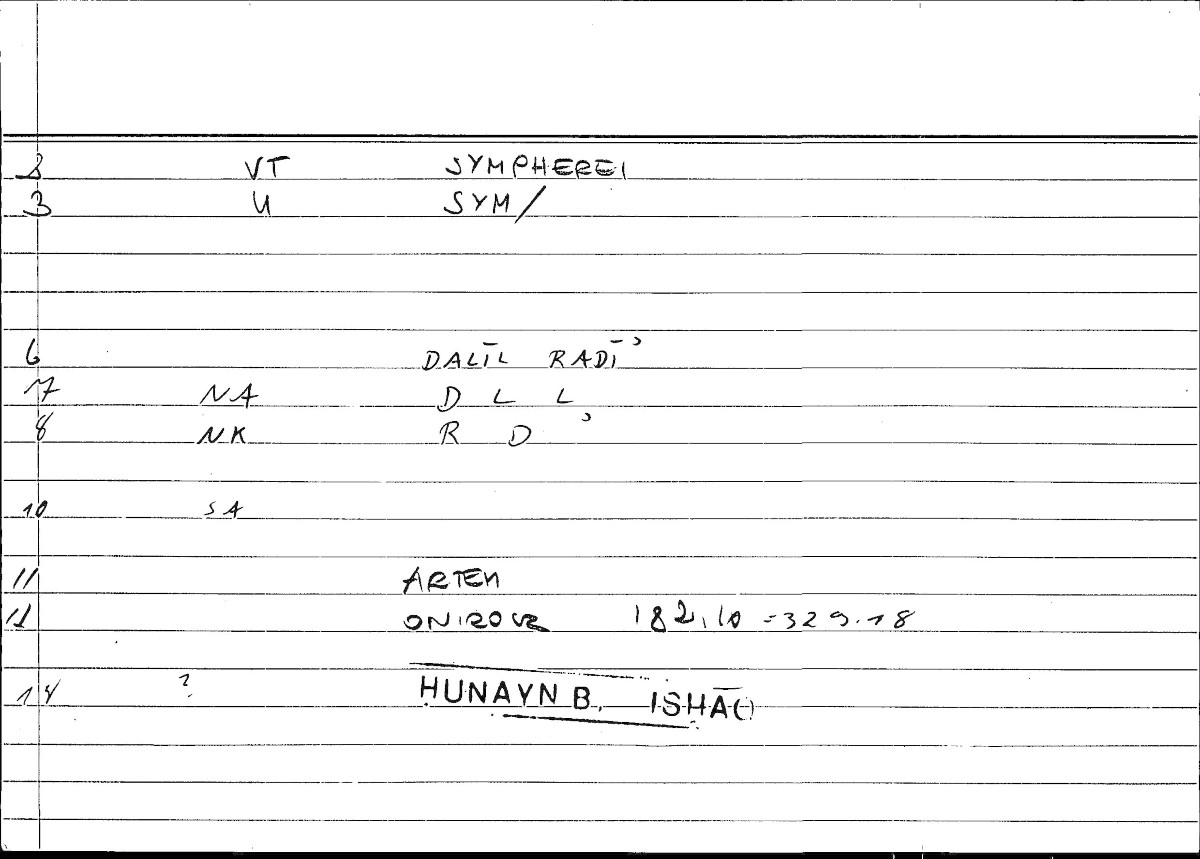 2 VT SYMPHEREI
3 U SYM/
6 DALĪL RADĪʾ
7 NA D L L
8 NK R D ʾ
10 SA
11 ARTEM
12 ONIROCR 182,10 = 329.18
14 ? HUNAYN B. ISHĀQ